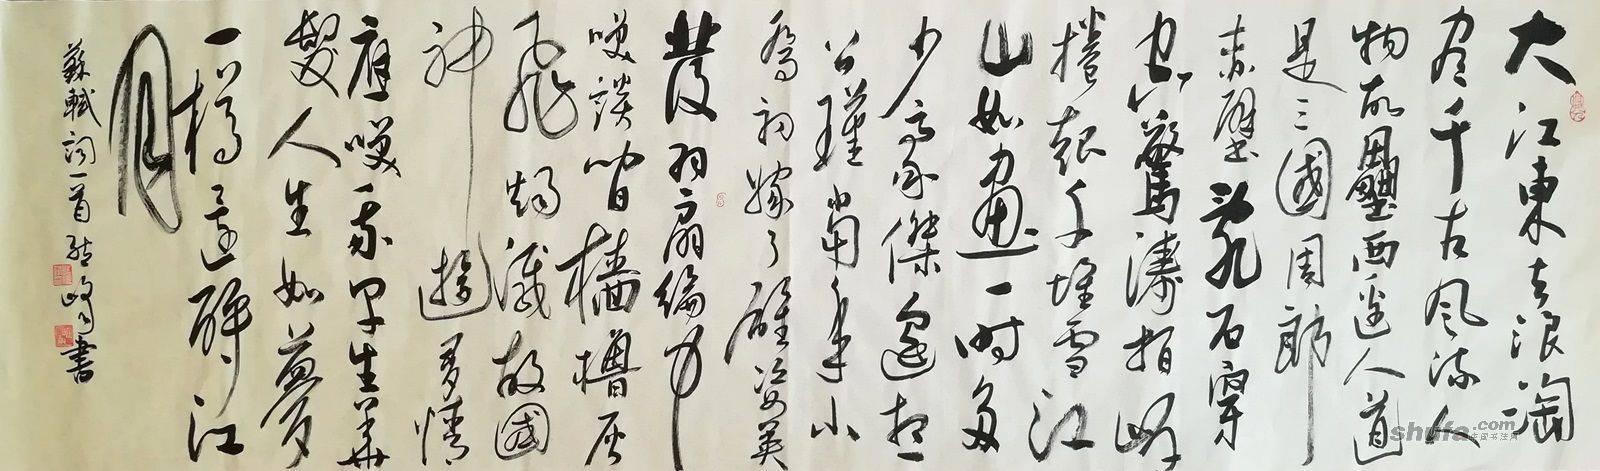 大江東去浪淘
盡千古風流人
物故壘西邊人道
是三國周郎
赤壁亂石穿
空驚濤拍岸
捲起千堆雪江
山如畫一時多
少豪傑遙想
公瑾當年小
喬初嫁了雄姿英
發羽扇綸巾
笑談間檣櫓灰
飛烟滅故國
神遊多情
應笑我早生華
髮人生如夢
一樽還酹江
月
蘇軾詞一首 峰書
shufa.com
中国书法网